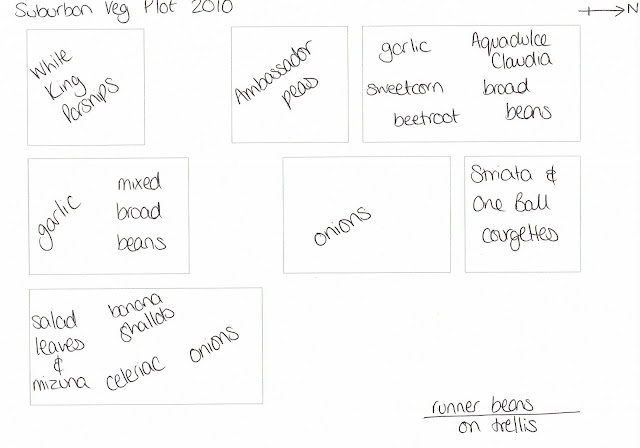 Suburban Veg Plot 2010
N
White
King
Parsnips
Ambassador
peas
garlic
sweetcorn
beetroot
Aquadulce
Claudia
broad
beans
garlic
mixed
broad
beans
onions
Striata &
One Ball
courgettes
salad
leaves
&
mizuna
banana
shallots
celeriac
onions
runner beans
on trellis